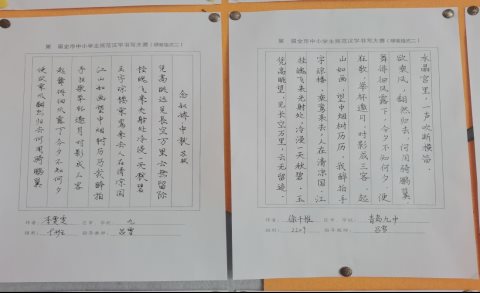 第 届全市中小学生规范汉字书写大赛
念奴娇·中秋 苏轼
凭高眺远见长空万里云无留迹
桂魄飞来光射处冷浸一天秋碧
玉宇琼楼乘鸾来去人在清凉国
江山如画望中烟树历历我醉拍
手狂歌举杯邀月对影成三客
起舞徘徊风露下今夕不知何夕
便欲乘风翻然归去何用骑鹏翼
作者: 区市、学校: 九
组别: 指导教师: 吕雪
第 届全市中小学生规范汉字书写大赛
凭高眺望,见长空万里,云无留迹,
桂魄飞来光射处,冷浸一天秋碧,玉
宇琼楼,乘鸾来去,人在清凉国,江
山如画,望中烟树历历,我醉拍手
狂歌,举杯邀月,对影成三客,起
舞徘徊风露下,今夕不知何夕,便
欲乘风,翻然归去,何用骑鹏翼,
水晶宫里,一声吹断横笛
作者: 区市、学校: 青岛九中
组别: 指导教师: 吕雪